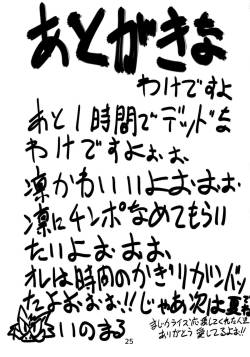 あとがきな
わけですよ
あと1時間でデッドな
わけですよぉぉ
凛かわいいよぉぉぉ
凛にチンポなめてもらい
たいよぉぉぉぉ
オレは時間のかぎりガンバッ
たよぉぉぉ!!じゃあ次は夏
いのまる
ありがとう愛してるよぉ!!
25